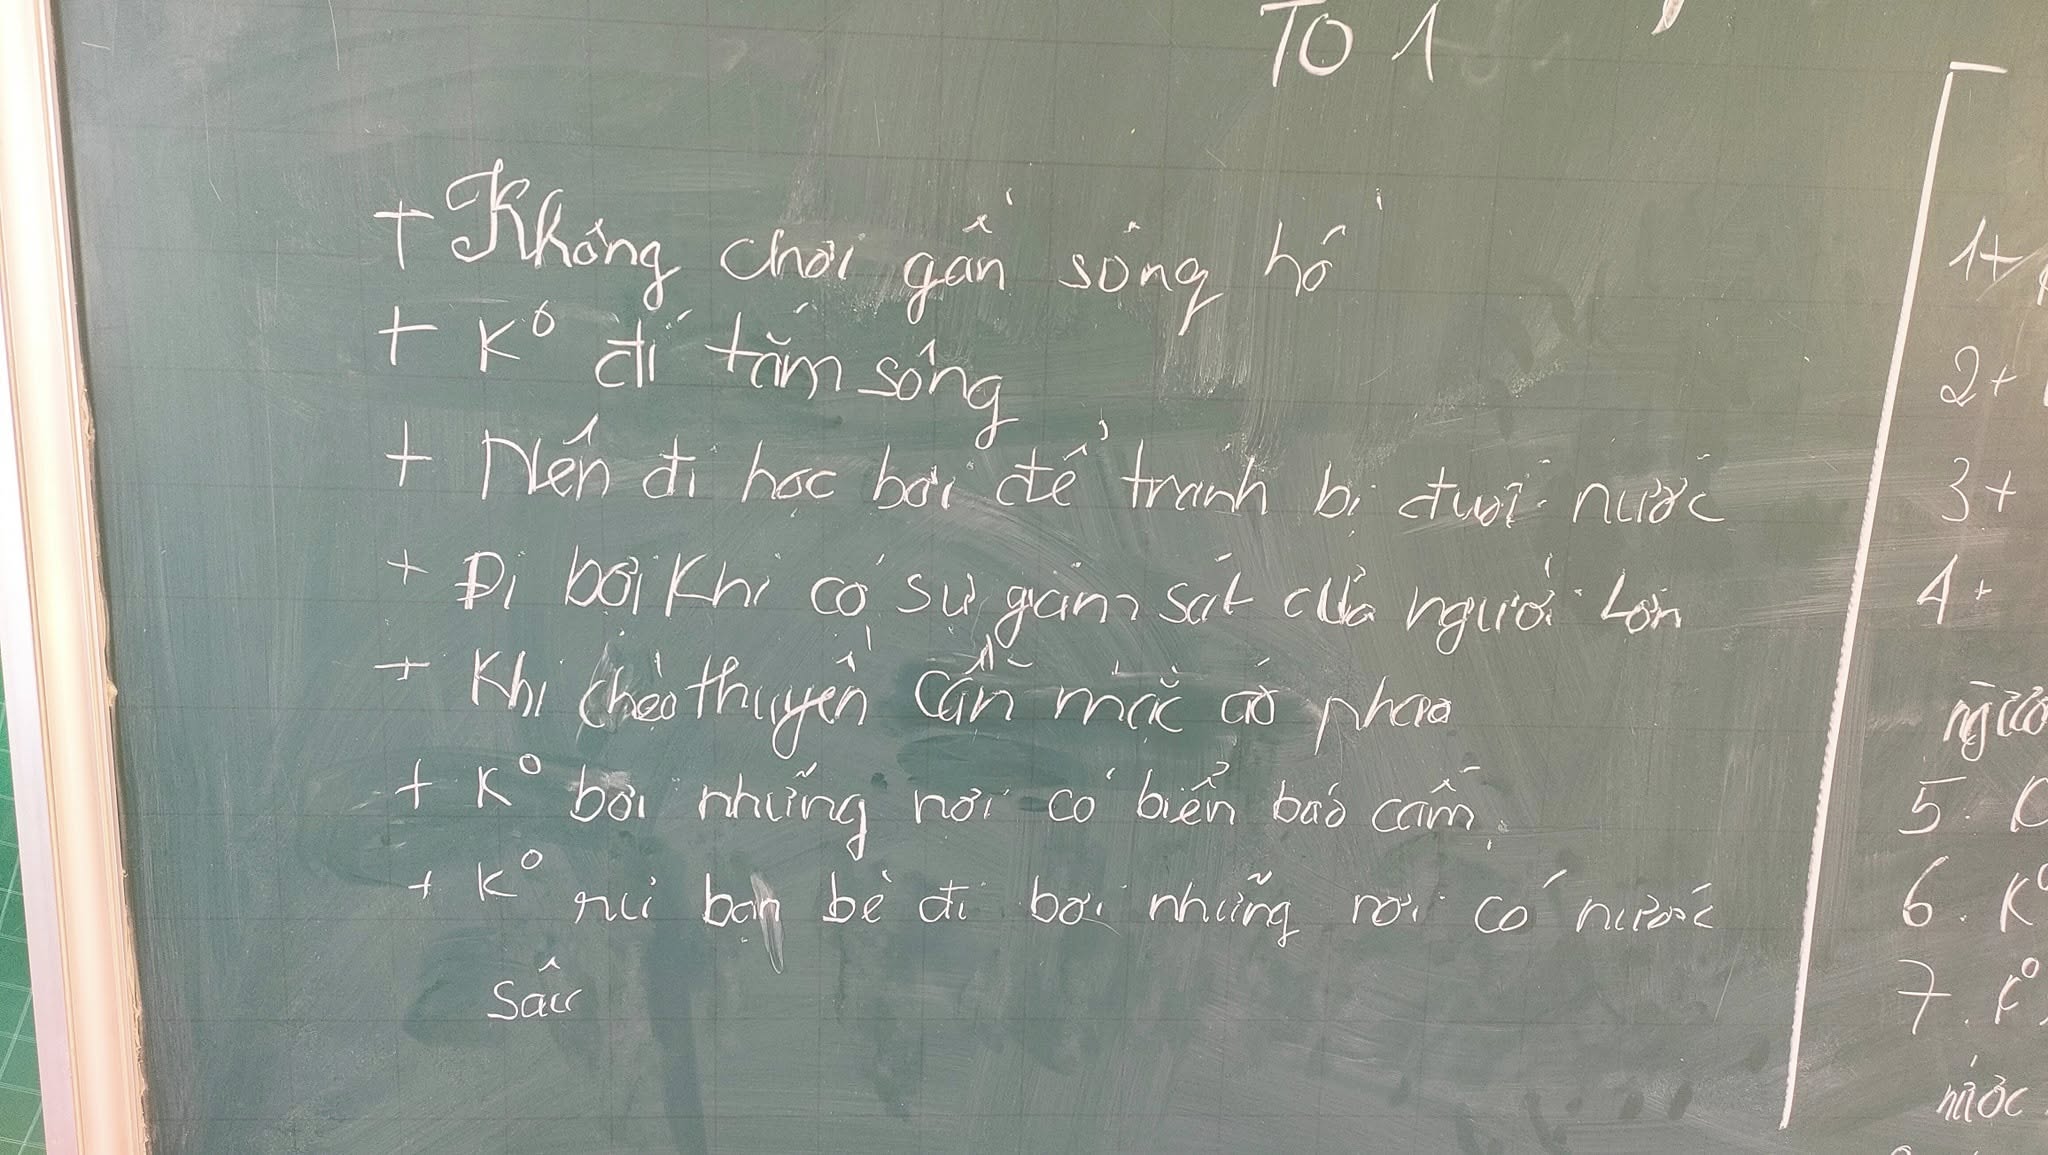 TỔ 1
+ Không chơi gần sông hồ
+ K° đi tắm sông
+ Nên đi học bơi để tránh bị đuối nước
+ Đi bơi khi có sự giám sát của người lớn
+ Khi chèo thuyền cần mặc áo phao
+ K° bơi những nơi có biển báo cấm
+ K° rủ bạn bè đi bơi những nơi có nước
sâu
1+
2+
3+
4+
5.
6. K°
7. K°
nước